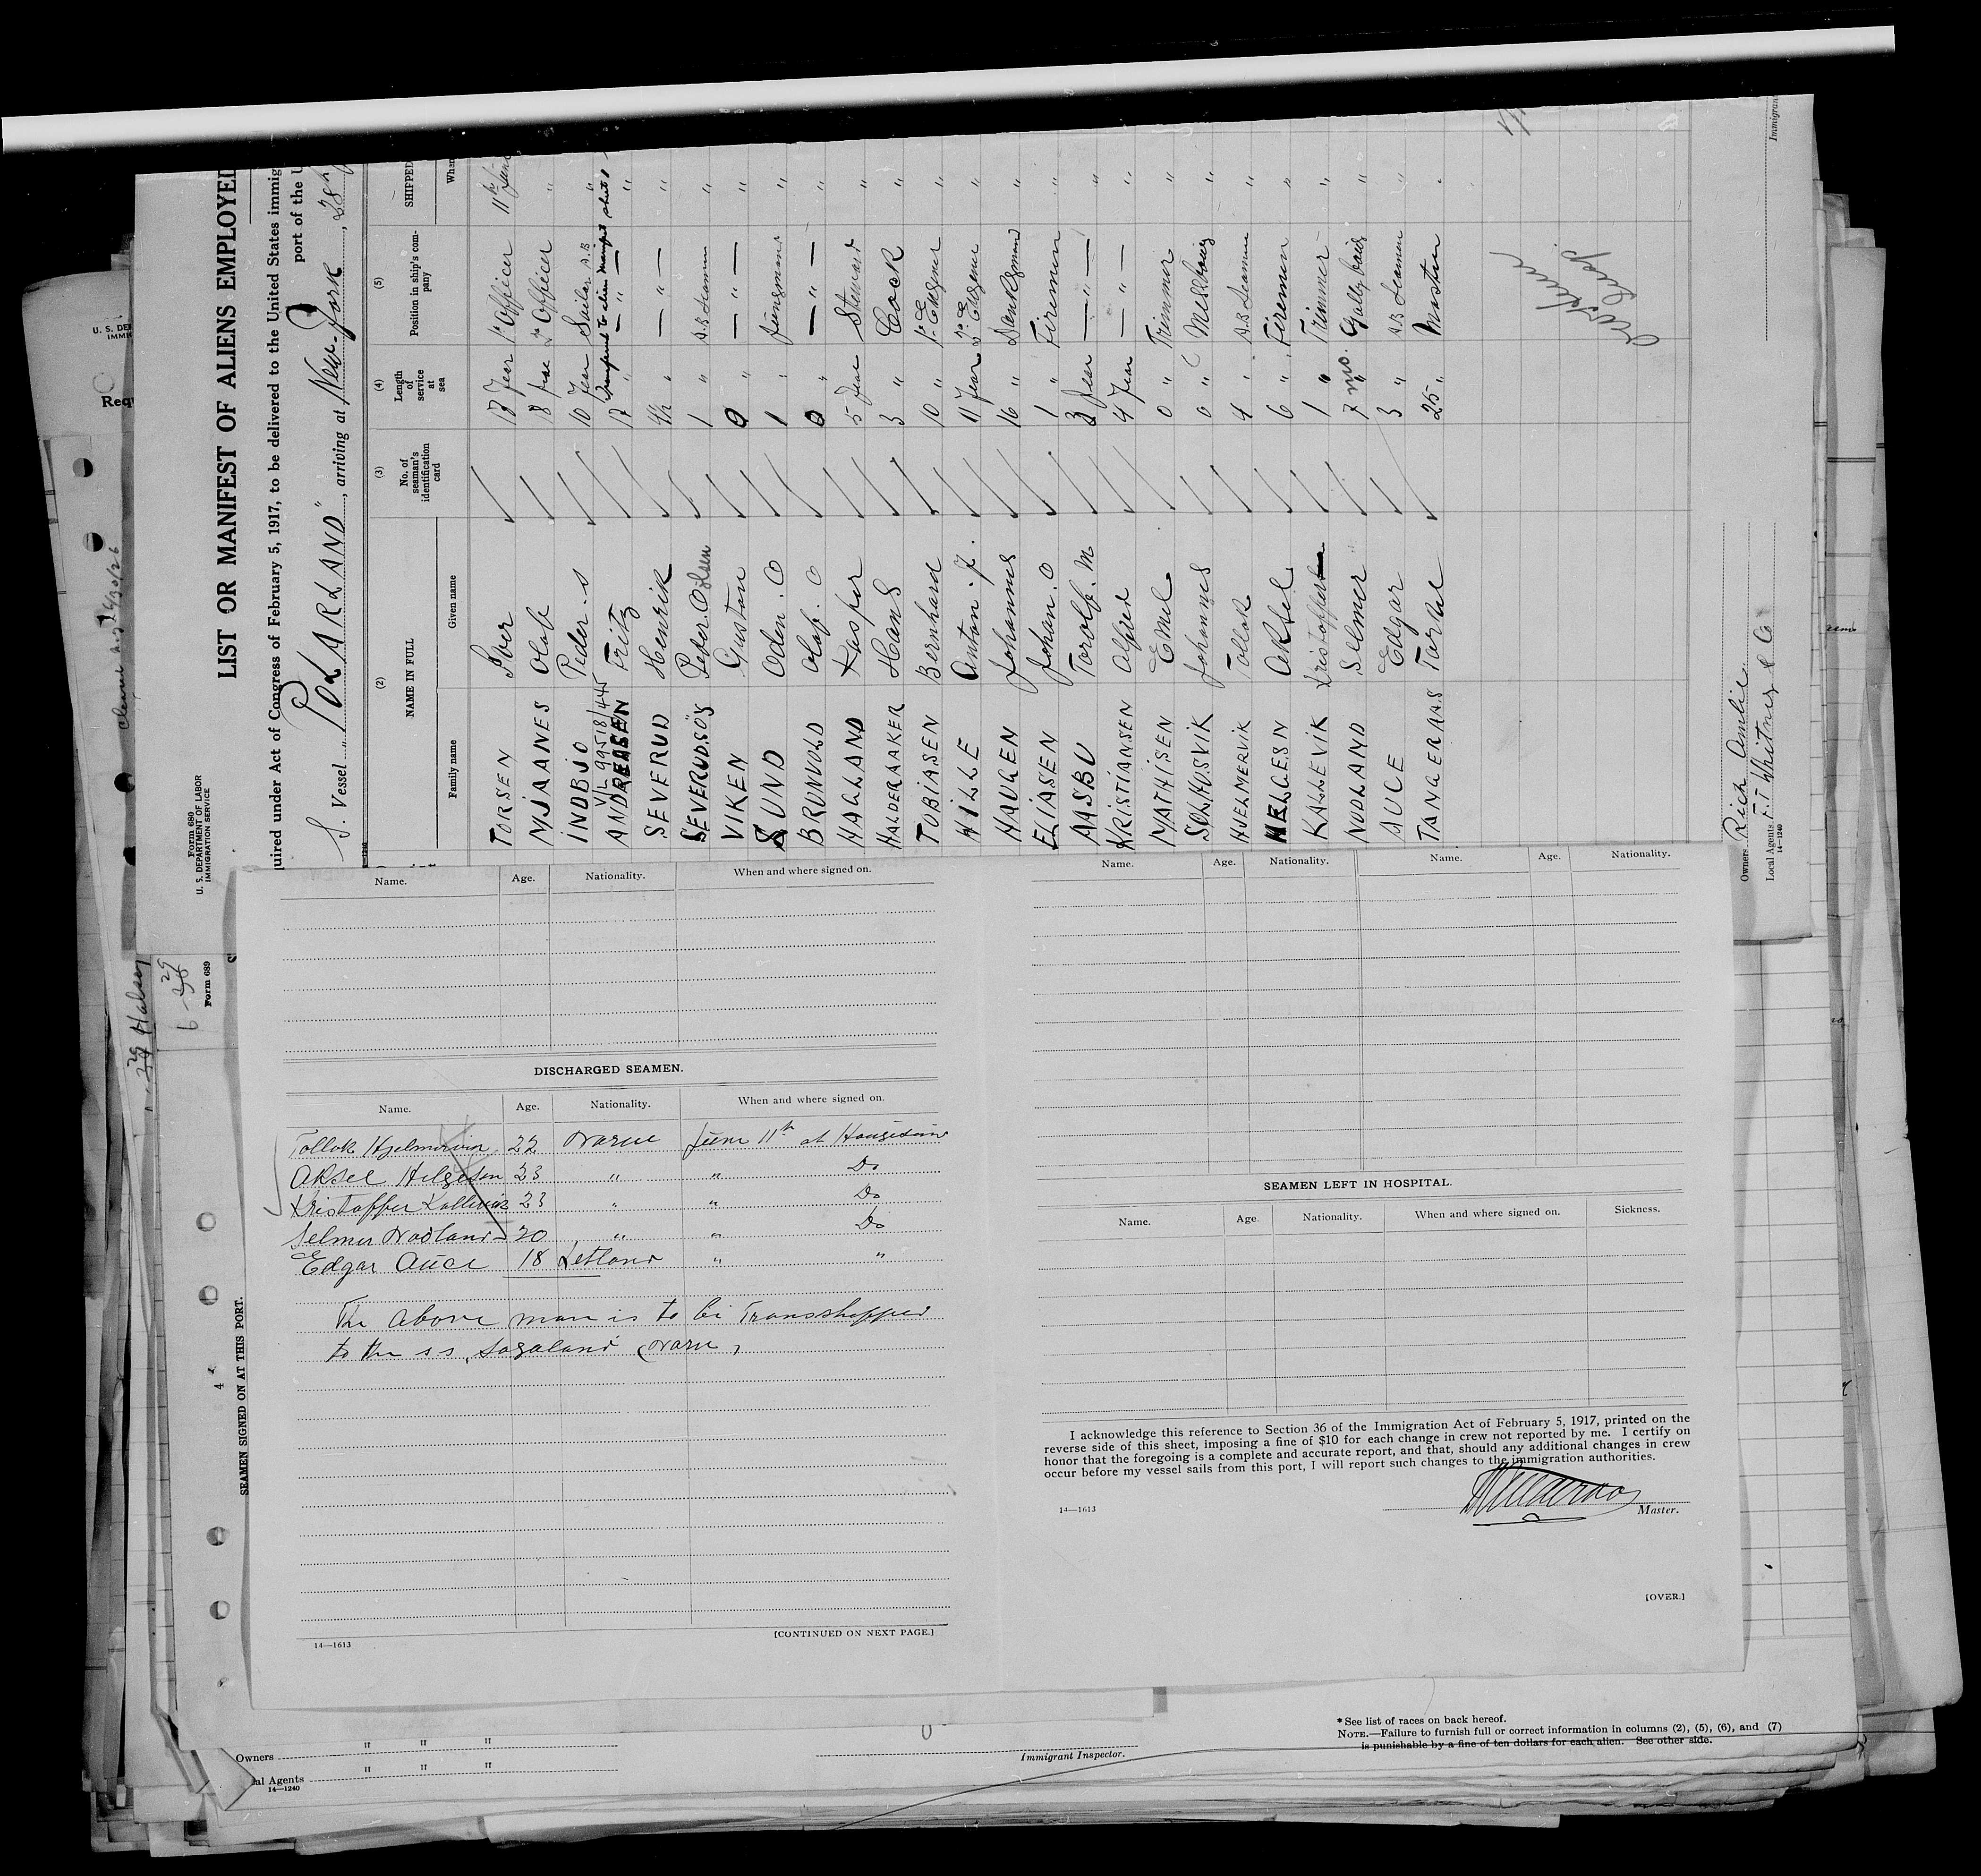 Form 680
U. S. DEPARTMENT OF LABOR
IMMIGRATION SERVICE
LIST OR MANIFEST OF ALIENS EMPLOYED
quired under Act of Congress of February 5, 1917, to be delivered to the United States immig
port of the U
S. Vessel "POLARLAND", arriving at New-York
(2) (3) (4) (5)
NAME IN FULL No. of seaman's identification card Length of service at sea Position in ship's company SHIPPED
Family name Given name When
TORSEN Iver 18 Year 1st Officer 11th June
MJAANES Olaf 8 Year 2n Officer "
INDBJO Peder. S 10 Year Sailor A.B "
ANDREASEN Fritz 17 " — " — "
SEVERUD Henrik 4½ " — " — "
SEVERUDSÖY Peder. Olsen 1 " A.B Seamen "
VIKEN Gustan 0 " — " — "
SUND Oden. O 1 " Jungmand "
BRUNVOLD Olaf. O 0 " — " — "
HAGLAND Kasper 5 Year Steward "
HALDERAAKER Hans 3 " Cock "
TOBIASEN Bernhard 10 " 1st Engener "
HILLE Anton. J. 11 Year 2n Engener "
HAUGEN Johannes 16 " Dankymand "
ELIASEN Johan. O 1 " Firemen "
AASBU Torolf. M 3 Year — " — "
KRISTIANSEN Alfred 4 Year — " — "
MATHISEN Emel 0 " Trimmer "
SOLHUSVIK Johannes 0 " Messboy "
HJELMERVIK Tollak 4 " A.B Seamen "
HELGESN Aksel 6 " Firemen "
KALLEVIK Kristoffer 1 " Trimmer "
NODLAND Selmer 7 mo. Gally boy "
AUCE Edgar 3 " A.B Seamen "
TANGERAAS Torkel 25 " Master "
Owners Rich Amlie
Local Agents F. T Whitney & Co
14—1240
Immigran
Form 689
SEAMEN SIGNED ON AT THIS PORT.
Name. Age. Nationality. When and where signed on.
DISCHARGED SEAMEN.
Name. Age. Nationality. When and where signed on.
Tollak Hjelmervik 22 Norue June 11th at Haugesund
Aksel Helgesen 23 " " Do
Kristoffer Kallevik 23 " " Do
Selmer Nodland 20 " " Do
Edgar Auce 18 Letland " "
The above men is to be Transshipped
to the s s, Sagaland (Norue,
14—1613
[CONTINUED ON NEXT PAGE.]
Name. Age. Nationality. Name. Age. Nationality.
SEAMEN LEFT IN HOSPITAL.
Name. Age. Nationality. When and where signed on. Sickness.
I acknowledge this reference to Section 36 of the Immigration Act of February 5, 1917, printed on the
reverse side of this sheet, imposing a fine of $10 for each change in crew not reported by me. I certify on
honor that the foregoing is a complete and accurate report, and that, should any additional changes in crew
occur before my vessel sails from this port, I will report such changes to the immigration authorities.
14—1613
Master.
[OVER.]
Owners " " "
al Agents " " "
14—1240
Immigrant Inspector.
* See list of races on back hereof.
NOTE.—Failure to furnish full or correct information in columns (2), (5), (6), and (7)
is punishable by a fine of ten dollars for each alien. See other side.